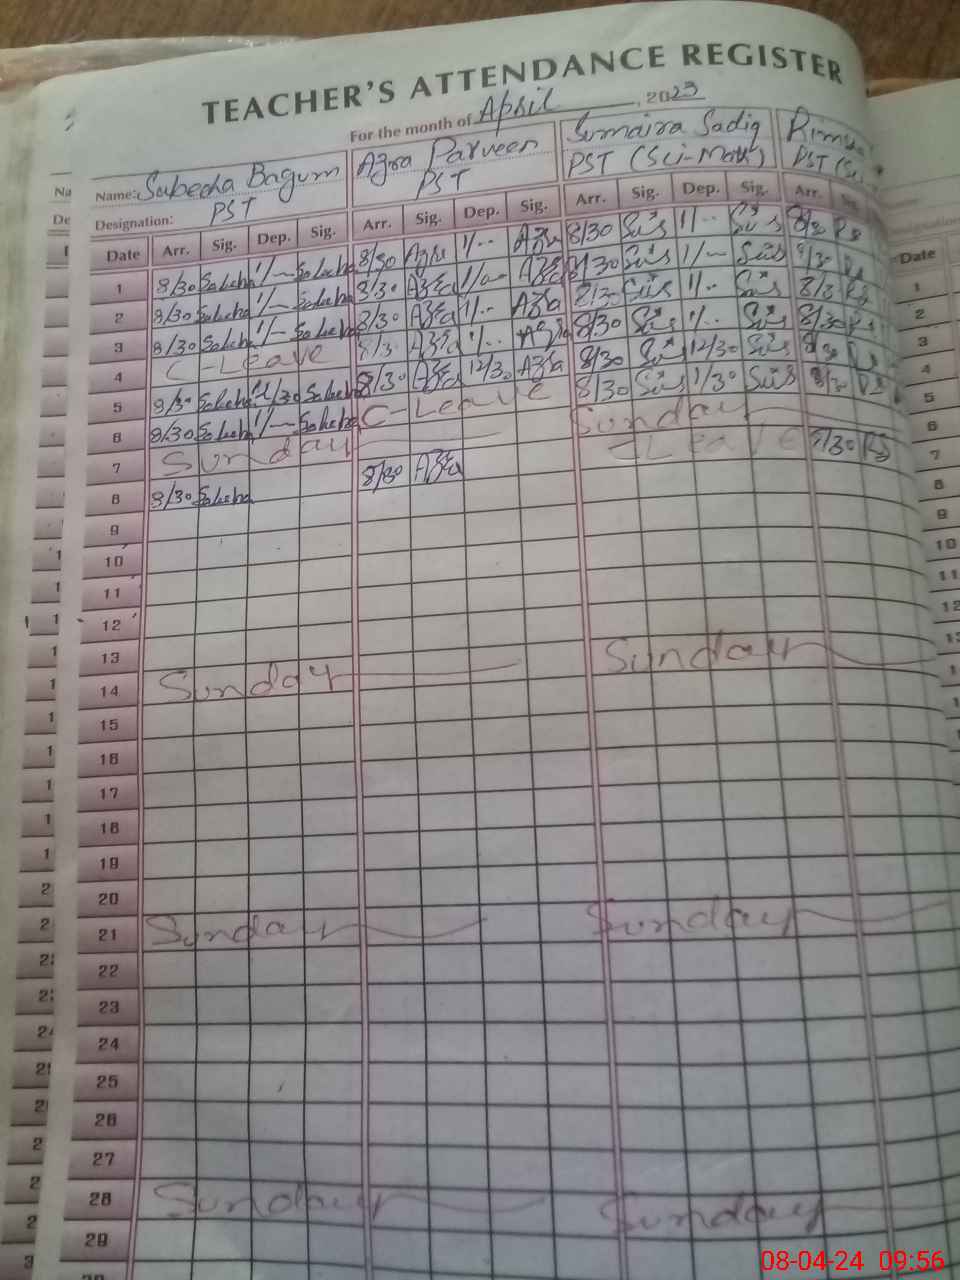 TEACHER'S ATTENDANCE REGISTER
For the month of April, 2023
Name: Sabeeha Bagum Azra Parveen Sumaira Sadiq
Designation: PST PST PST (Sci-Math) PST
Date Arr. Sig. Dep. Sig. Arr. Sig. Dep. Sig. Arr. Sig. Dep. Sig. Arr. Sig.
1 8/30 Sabeeha 1/-- Sabeeha 8/30 Azra 1/-- Azra 8/30 1/-- 8/30
2 8/30 Sabeeha 1/-- Sabeeha 8/30 Azra 1/-- Azra 8/30 1/-- 8/30
3 8/30 Sabeeha 1/-- Sabeeha 8/30 Azra 1/-- Azra 8/30 1/-- 8/30
4 C-Leave 8/30 Azra 1/-- Azra 8/30 1/-- 8/30
5 8/30 Sabeeha 12/30 Sabeeha 8/30 Azra 12/30 Azra 8/30 12/30 8/30
6 8/30 Sabeeha 1/-- Sabeeha C-Leave 8/30 1/30 8/30
7 Sunday Sunday
8 8/30 Sabeeha 8/30 Azra C Leave 8/30
9
10
11
12
13
14 Sunday Sunday
15
16
17
18
19
20
21 Sunday Sunday
22
23
24
25
26
27
28 Sunday Sunday
29
Date
1
2
3
4
5
6
7
8
9
10
11
12
08-04-24 09:56